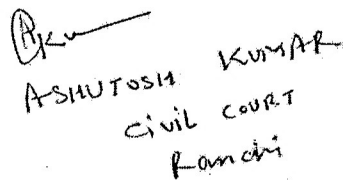 ASHUTOSH KUMAR
CIVIL COURT
Ranchi